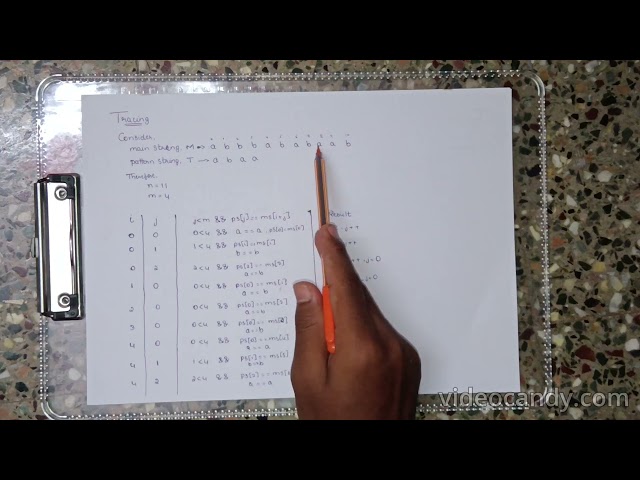 Tracing
Consider,
main string, M → a b b b a b a b a a b
pattern string, T → a b a a
Therefore
n = 11
m = 4
i j j<m && ps[j] == ms[i+j] Result
0 0 0<4 && a == a j++
0 1 1<4 && ps[1] == ms[1] ++
b == b
0 2 2<4 && ps[2] == ms[2] ++ j=0
a == b
1 0 0<4 && ps[0] == ms[1] j=0
a == b
2 0 0<4 && ps[0] == ms[2]
a == b
3 0 0<4 && ps[0] == ms[3]
a == b
4 0 0<4 && ps[0] == ms[4]
a == a
4 1 1<4 && ps[1] == ms[5]
4 2 2<4 && ps[2] == ms[6
a == a
videocandy.com